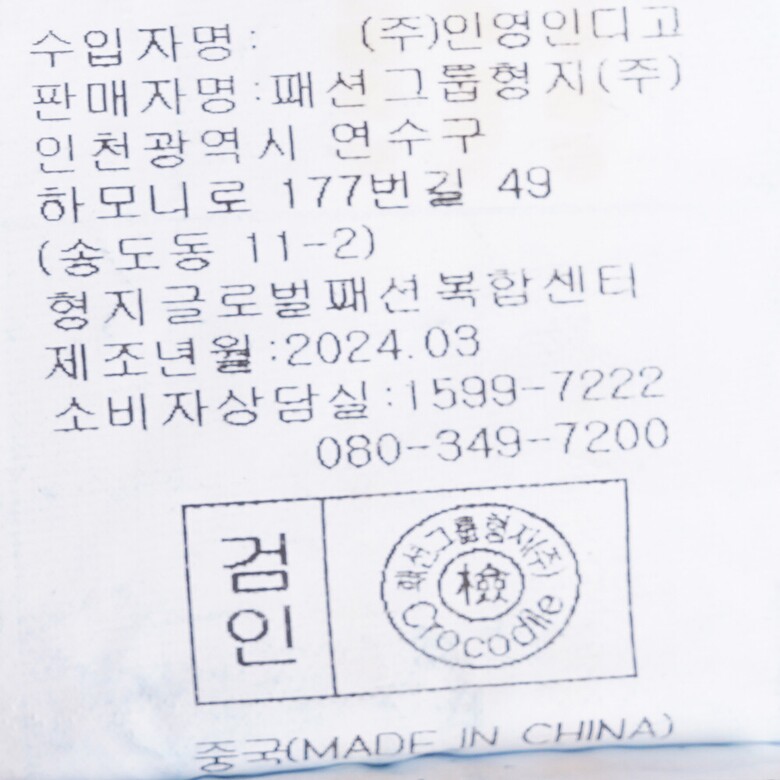 수입자명: (주)인영인디고
판매자명:패션그룹형지(주)
인천광역시 연수구
하모니로 177번길 49
(송도동 11-2)
형지글로벌패션복합센터
제조년월:2024.03
소비자상담실:1599-7222
080-349-7200
검인
패션그룹형지(주)
檢
Crocodile
중국(MADE IN CHINA)